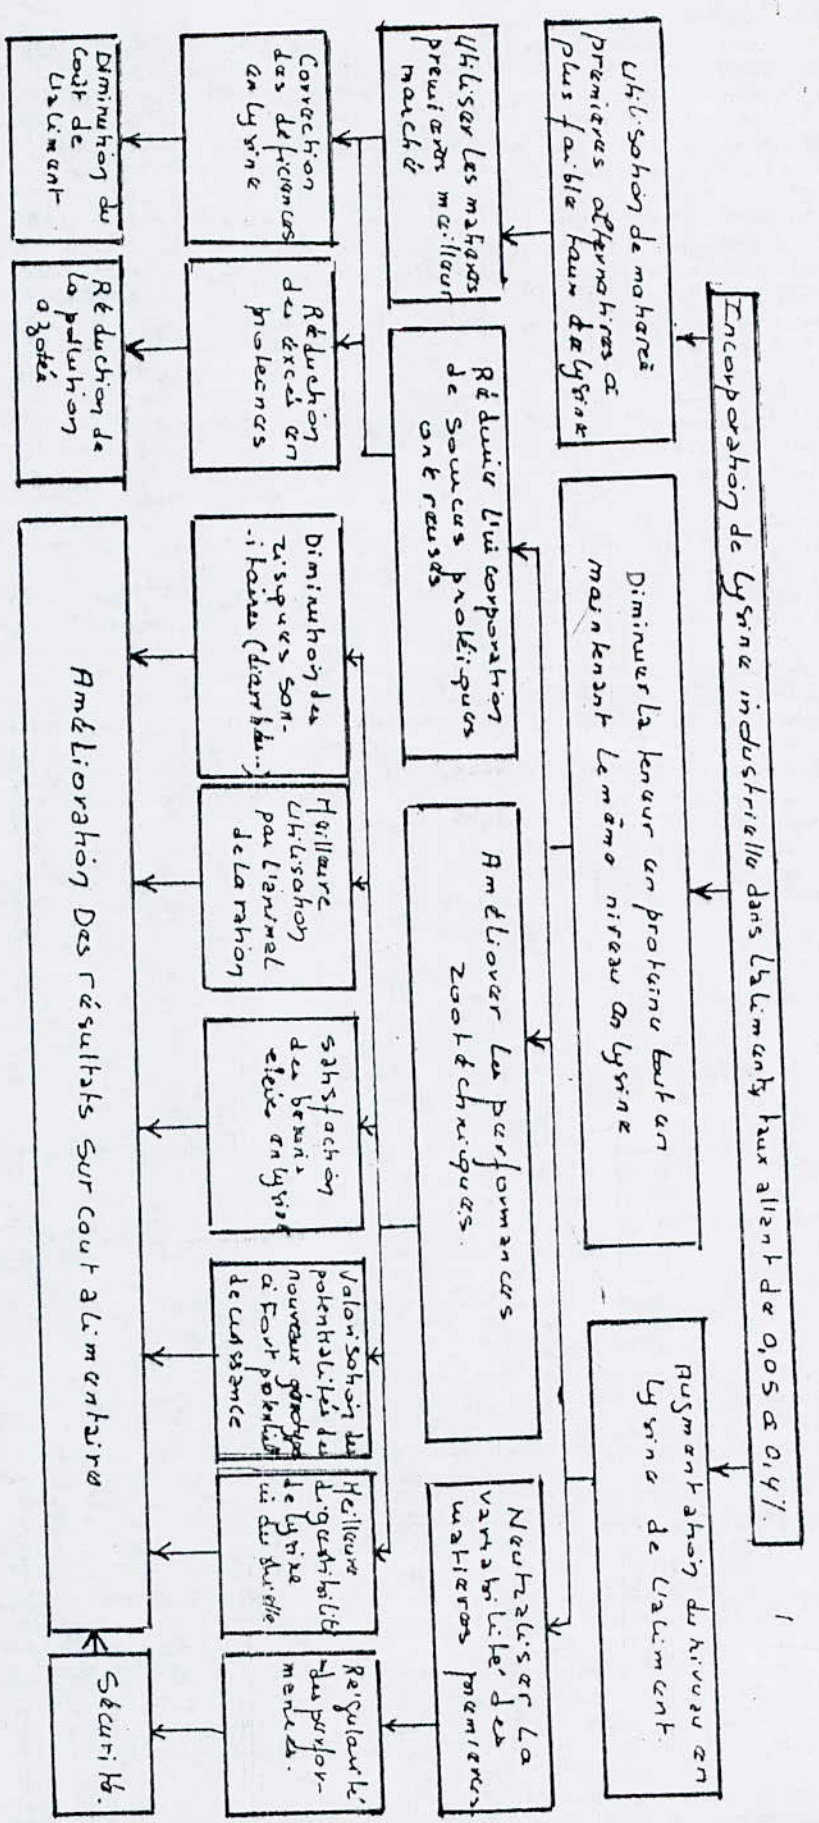 Incorporation de Lysine industrielle dans l'aliment, taux allant de 0,05 à 0,4%.
Utilisation de matière
premieres alternatives à
plus faible taux de lysine
Diminuer la teneur en proteine tout en
maintenant le même niveau en lysine
Augmentation du niveau en
lysine de l'aliment.
Utiliser les matieres
premieres meilleur
marché
Réduire l'incorporation
de sources protéiques
onéreuses
Améliorer les performances
zootéchniques.
Neutraliser la
variabilité des
matieres premieres
Correction
des déficiences
en lysine
Réduction
des excés en
proteines
Diminution des
risques san-
itaires (diarrhées...)
Meilleure
utilisation
par l'animal
de la ration
Satisfaction
des besoins
élevés en lysine
Valorisation des
potentialités des
nouveaux génotypes
à fort potentiel
de croissance
Meilleure
digestibilité
de lysine
industrielle
Régularité
des perfor-
mances.
Diminution du
coût de
l'aliment
Réduction de
la pollution
azotée
Amélioration Des résultats sur cout alimentaire
Sécurité.
1